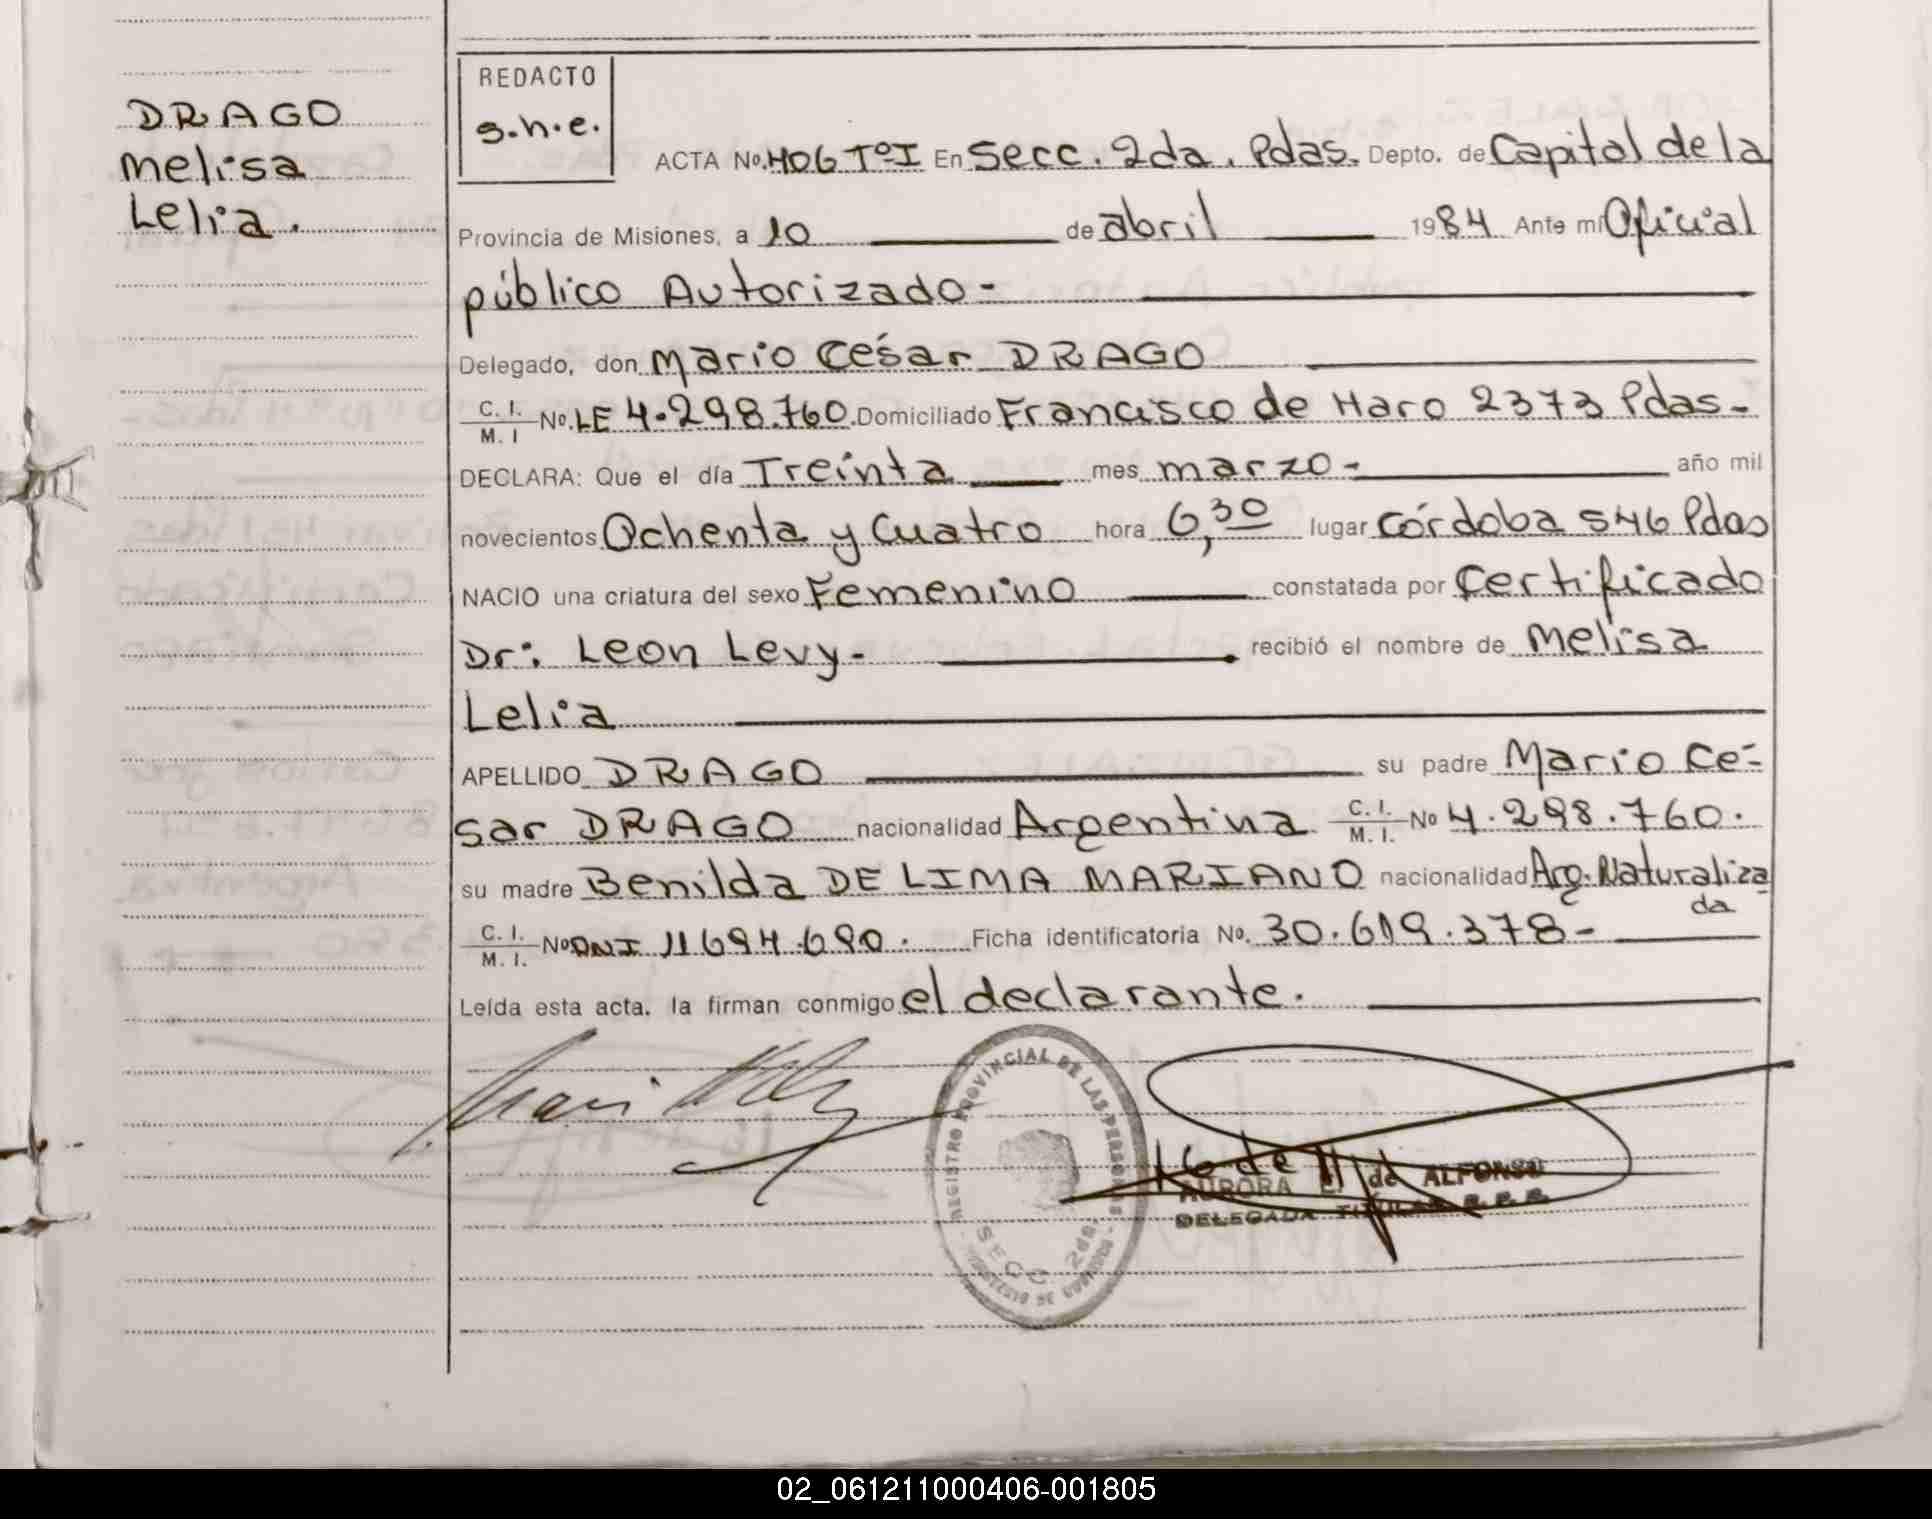 DRAGO
Melisa
Lelia.
REDACTO
s.h.e.
ACTA No. 406 Tº I En Secc. 2da. Pdas. Depto. de Capital de la
Provincia de Misiones, a 10 de abril 1984 Ante mí Oficial
público Autorizado -
Delegado, don Mario César DRAGO
C. I. / M. I No. LE 4.298.760. Domiciliado Francisco de Haro 2373 Pdas-
DECLARA: Que el día Treinta mes marzo - año mil
novecientos Ochenta y Cuatro hora 6,30 lugar Córdoba 546 Pdas
NACIO una criatura del sexo Femenino constatada por Certificado
Dr: Leon Levy- recibió el nombre de Melisa
Lelia
APELLIDO DRAGO su padre Mario Cé-
sar DRAGO nacionalidad Argentina C. I. / M. I. No 4.298.760.
su madre Benilda DE LIMA MARIANO nacionalidad Arg. Naturaliza
da
C. I. / M. I. No DNI 11694.690. Ficha identificatoria No. 30.619.378-
Leída esta acta, la firman conmigo el declarante.
REGISTRO PROVINCIAL DE LAS PERSONAS
SECC 2da.
AURORA de ALFONSO
DELEGADA TITULAR R. P. P.
02_061211000406-001805